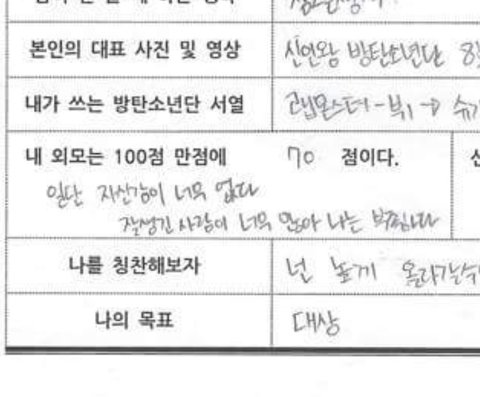 본인의 대표 사진 및 영상 신인왕 방탄소년단
내가 쓰는 방탄소년단 서열 랩몬스터-뷔-
내 외모는 100점 만점에 70 점이다.
일단 자신감이 너무 없다
잘생긴 사람이 너무 많아 나는
나를 칭찬해보자 넌 높게
나의 목표 대상